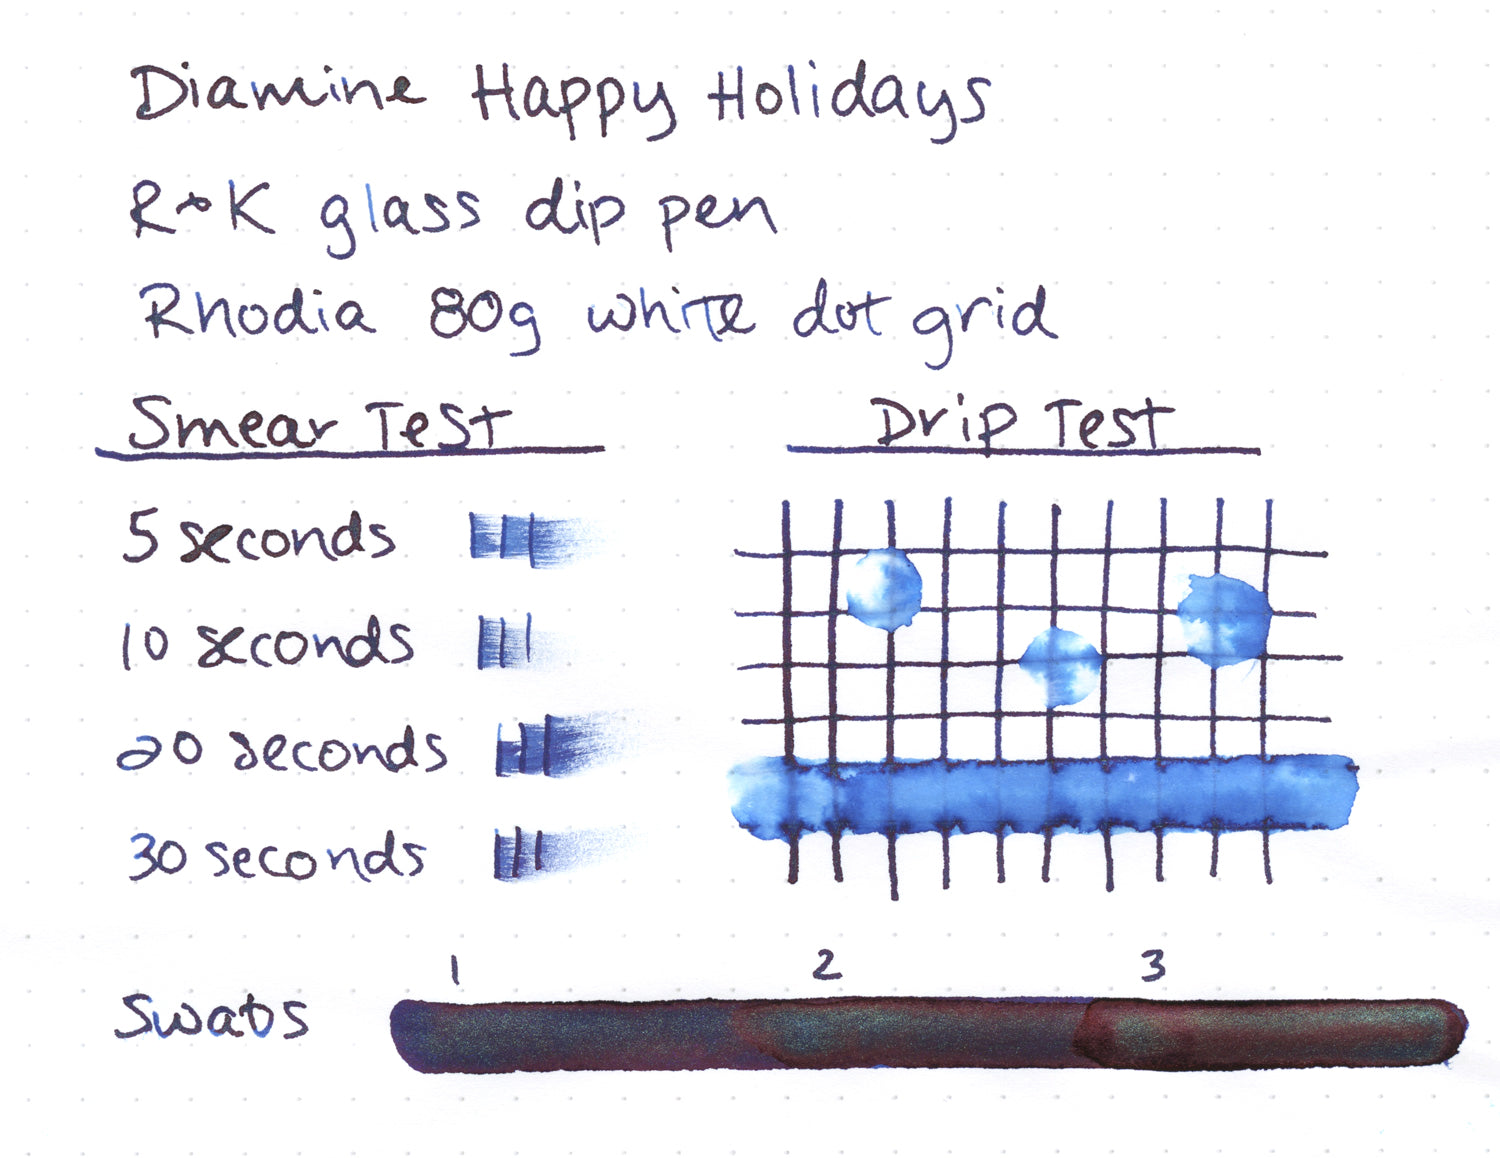 Diamine Happy Holidays
R+K glass dip pen
Rhodia 80g white dot grid
Smear Test
Drip Test
5 seconds
10 seconds
20 seconds
30 seconds
1 2 3
Swabs